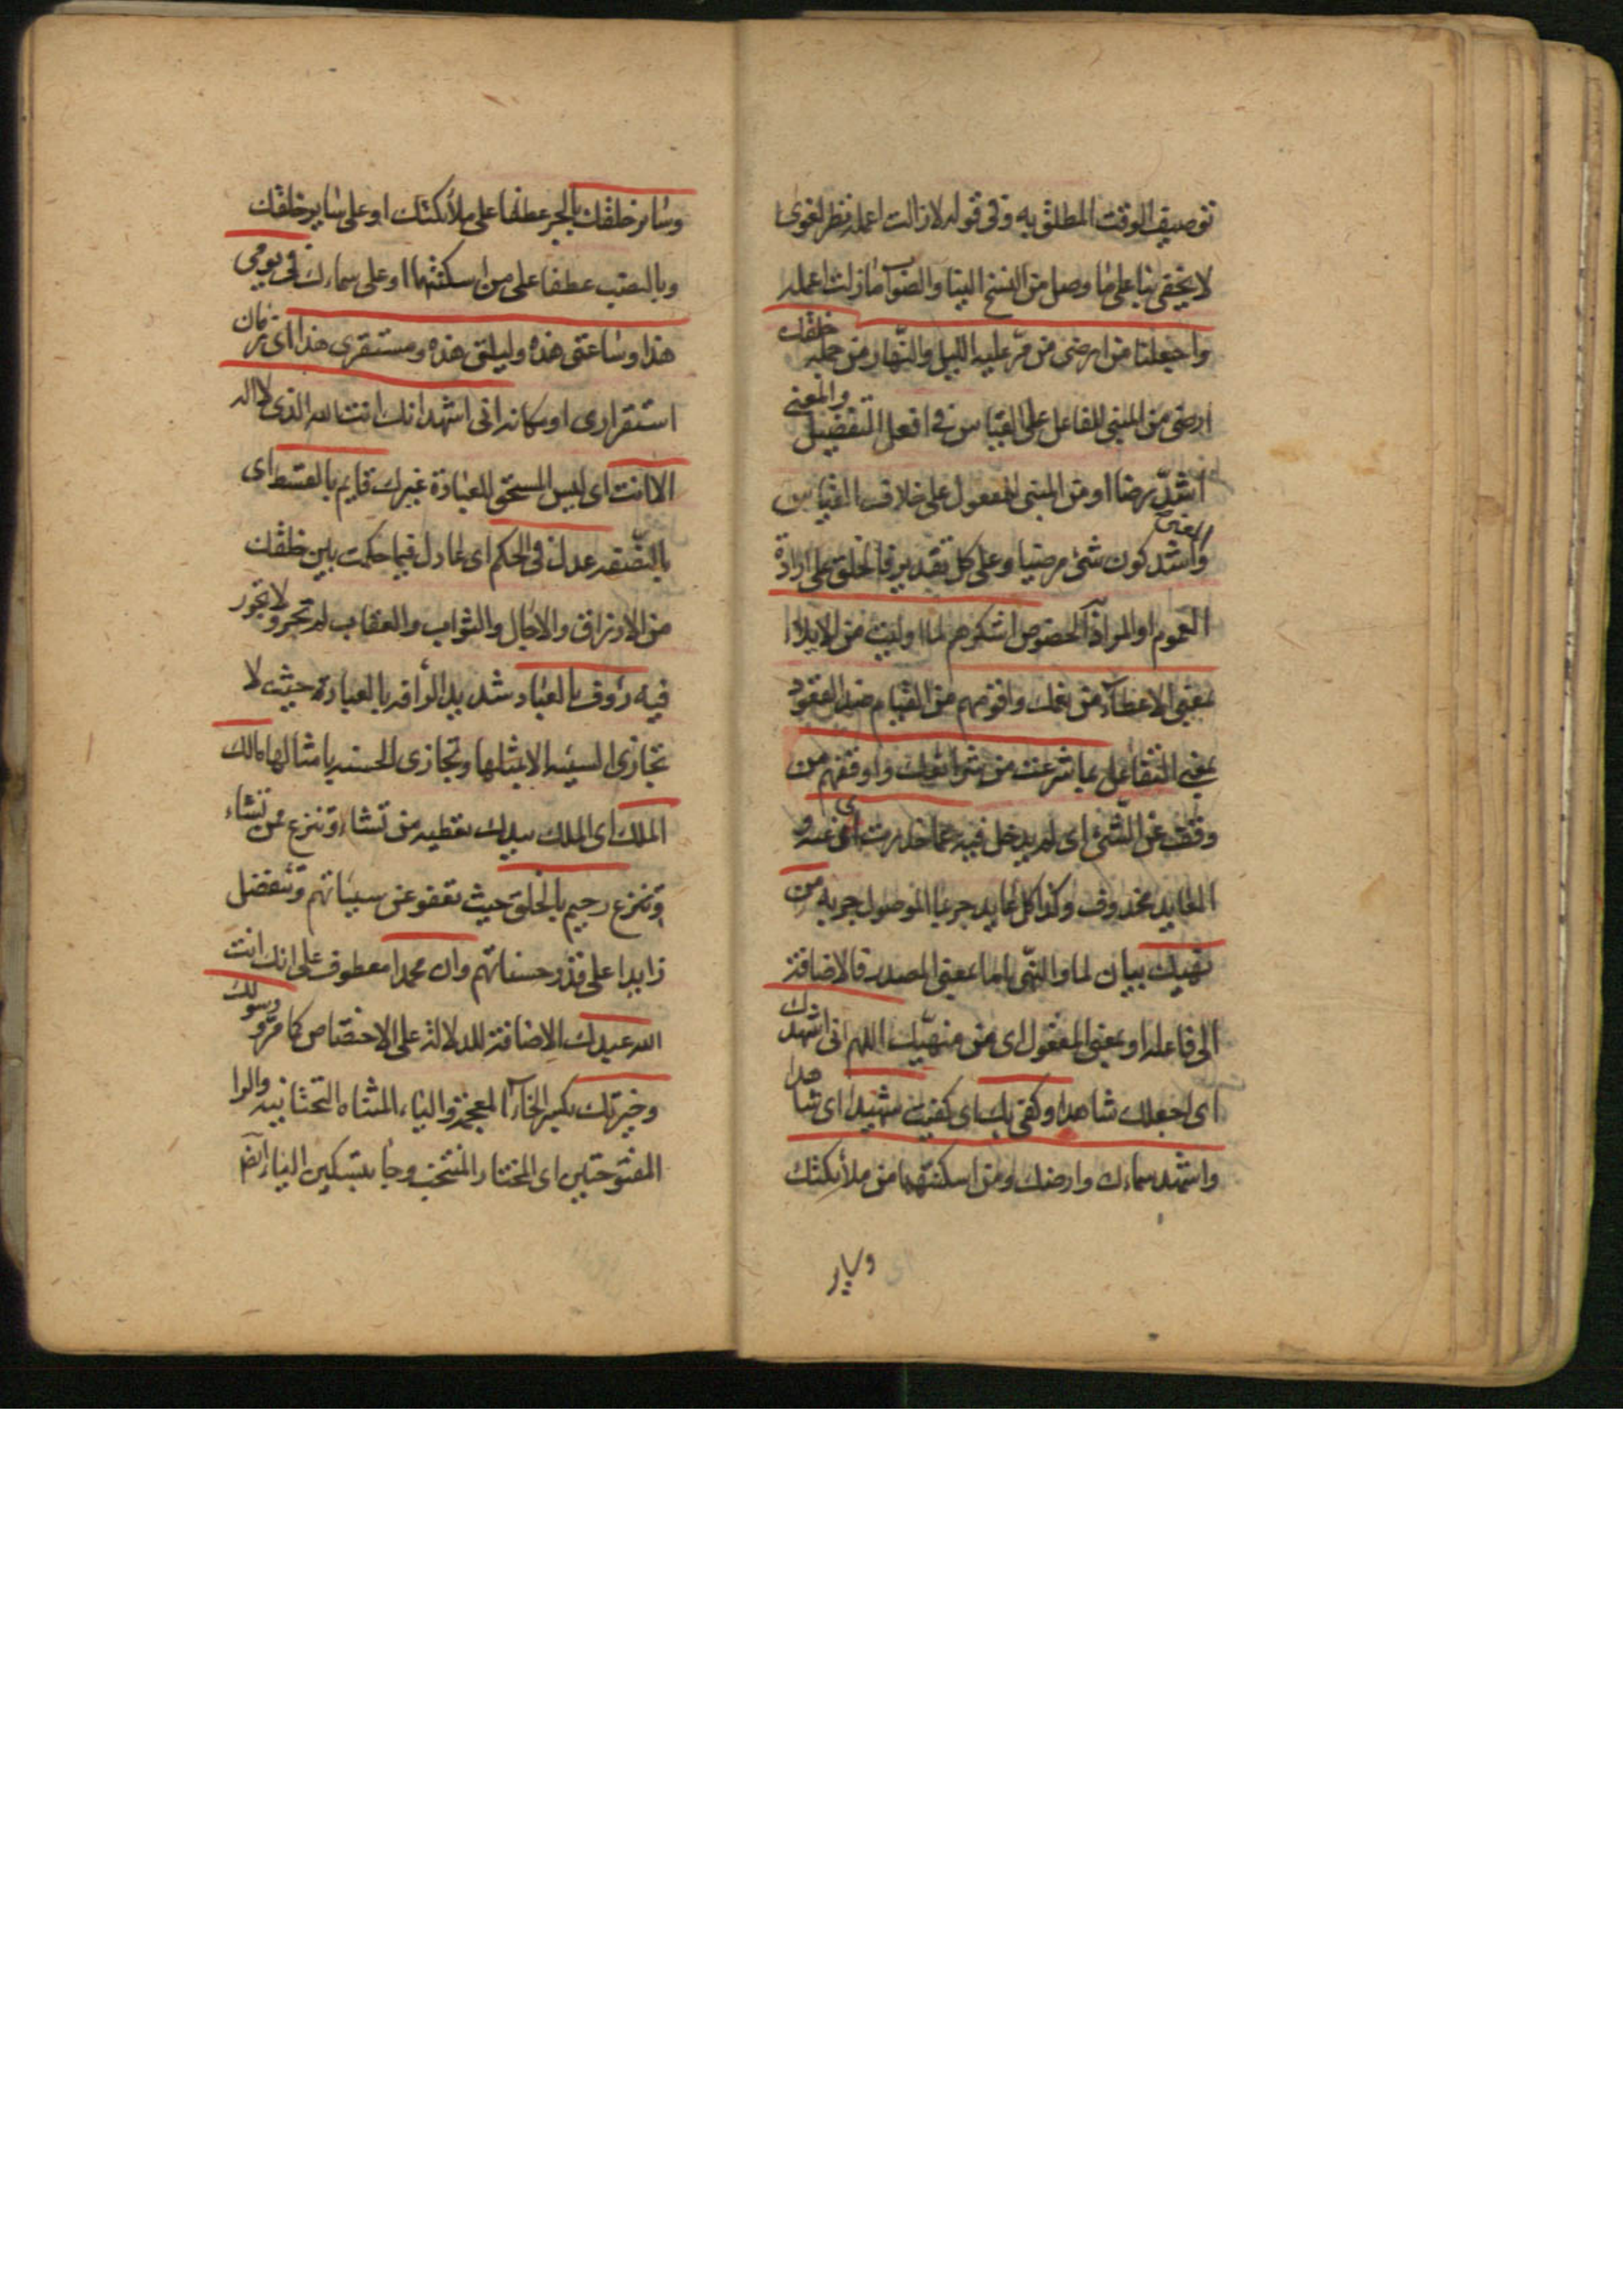 توصيف الوقت المطلق به وفى قوله لا زالت اعمله نظر لغوى
لا يخفى بنا على ما وصل من النسخ الينا والصواب ما زلت اعمله
واجعلنا من ارضى من مرّ عليه الليل والنهار من جملة خلقك
ارضى من المبنى للفاعل على القياس فى افعل التفضيل والمعنى
اشدّ رضا او من المبنى للمفعول على خلاف القياس
والمعنى واشد كون شئ مرضيا وعلى كل تقدير فالخلق على ارادة
العموم او المراد الخصوص اشكرهم لما اوليت من الايلاء
بمعنى الاعطاء من نعمك واقومهم من القيام ضد القعود
بمعنى التفاعل بما شرعت من شرائعك واوقفهم من
وقف عن الشئ اى لم يدخل فيه عما حذرت اى عنه و
العايد محذوف وكذا كل عايد جر بما الموصول جر به من
نهيك بيان لما والنهى اما بمعنى المصدر فالاضافة
الى فاعله او بمعنى المفعول اى من منهيّك اللهم انى اشهدك
اى اجعلك شاهدا وكفى بك اى كفيت شهيدا اى شاهدا
واشهد سماءك وارضك ومن اسكنتهما من ملائكتك
وساير
وساير خلقك بالجر عطفا على ملائكتك او على ساير خلقك
وبالنصب عطفا على من اسكنتهما او على سماءك فى يومى
هذا وساعتى هذه وليلتى هذه ومستقرى هذا اى زمان
استقرارى او مكانه انى اشهد انك انت الله الذى لا اله
الا انت اى ليس المستحق للعبادة غيرك قايم بالقسط اى
عدل فى الحكم اى عادل فيما حكمت بين خلقك
من الارزاق والاجال والثواب والعقاب لم تجر ولا تجور
فيه رؤف بالعباد شديد الرأفة بالعبادة حيث لا
تجازى السيئه الا بمثلها وتجازى الحسنه بامثالها مالك
الملك اى الملك بيدك تعطيه من تشاء وتنزع ممن تشاء
وتنزع رحيم بالخلق حيث تعفو عن سيئاتهم وتتفضل
زايدا على قدر حسناتهم وان محمدا معطوف على انك انت
الله عبدك الاضافة للدلالة على الاختصاص كما مرّ ورسولك
وخيرتك بكسر الخاء المعجمة والياء المثناه التحتانيه والرا
المفتوحتين اى المختار المنتخب وجا بتسكين الياء ايضا